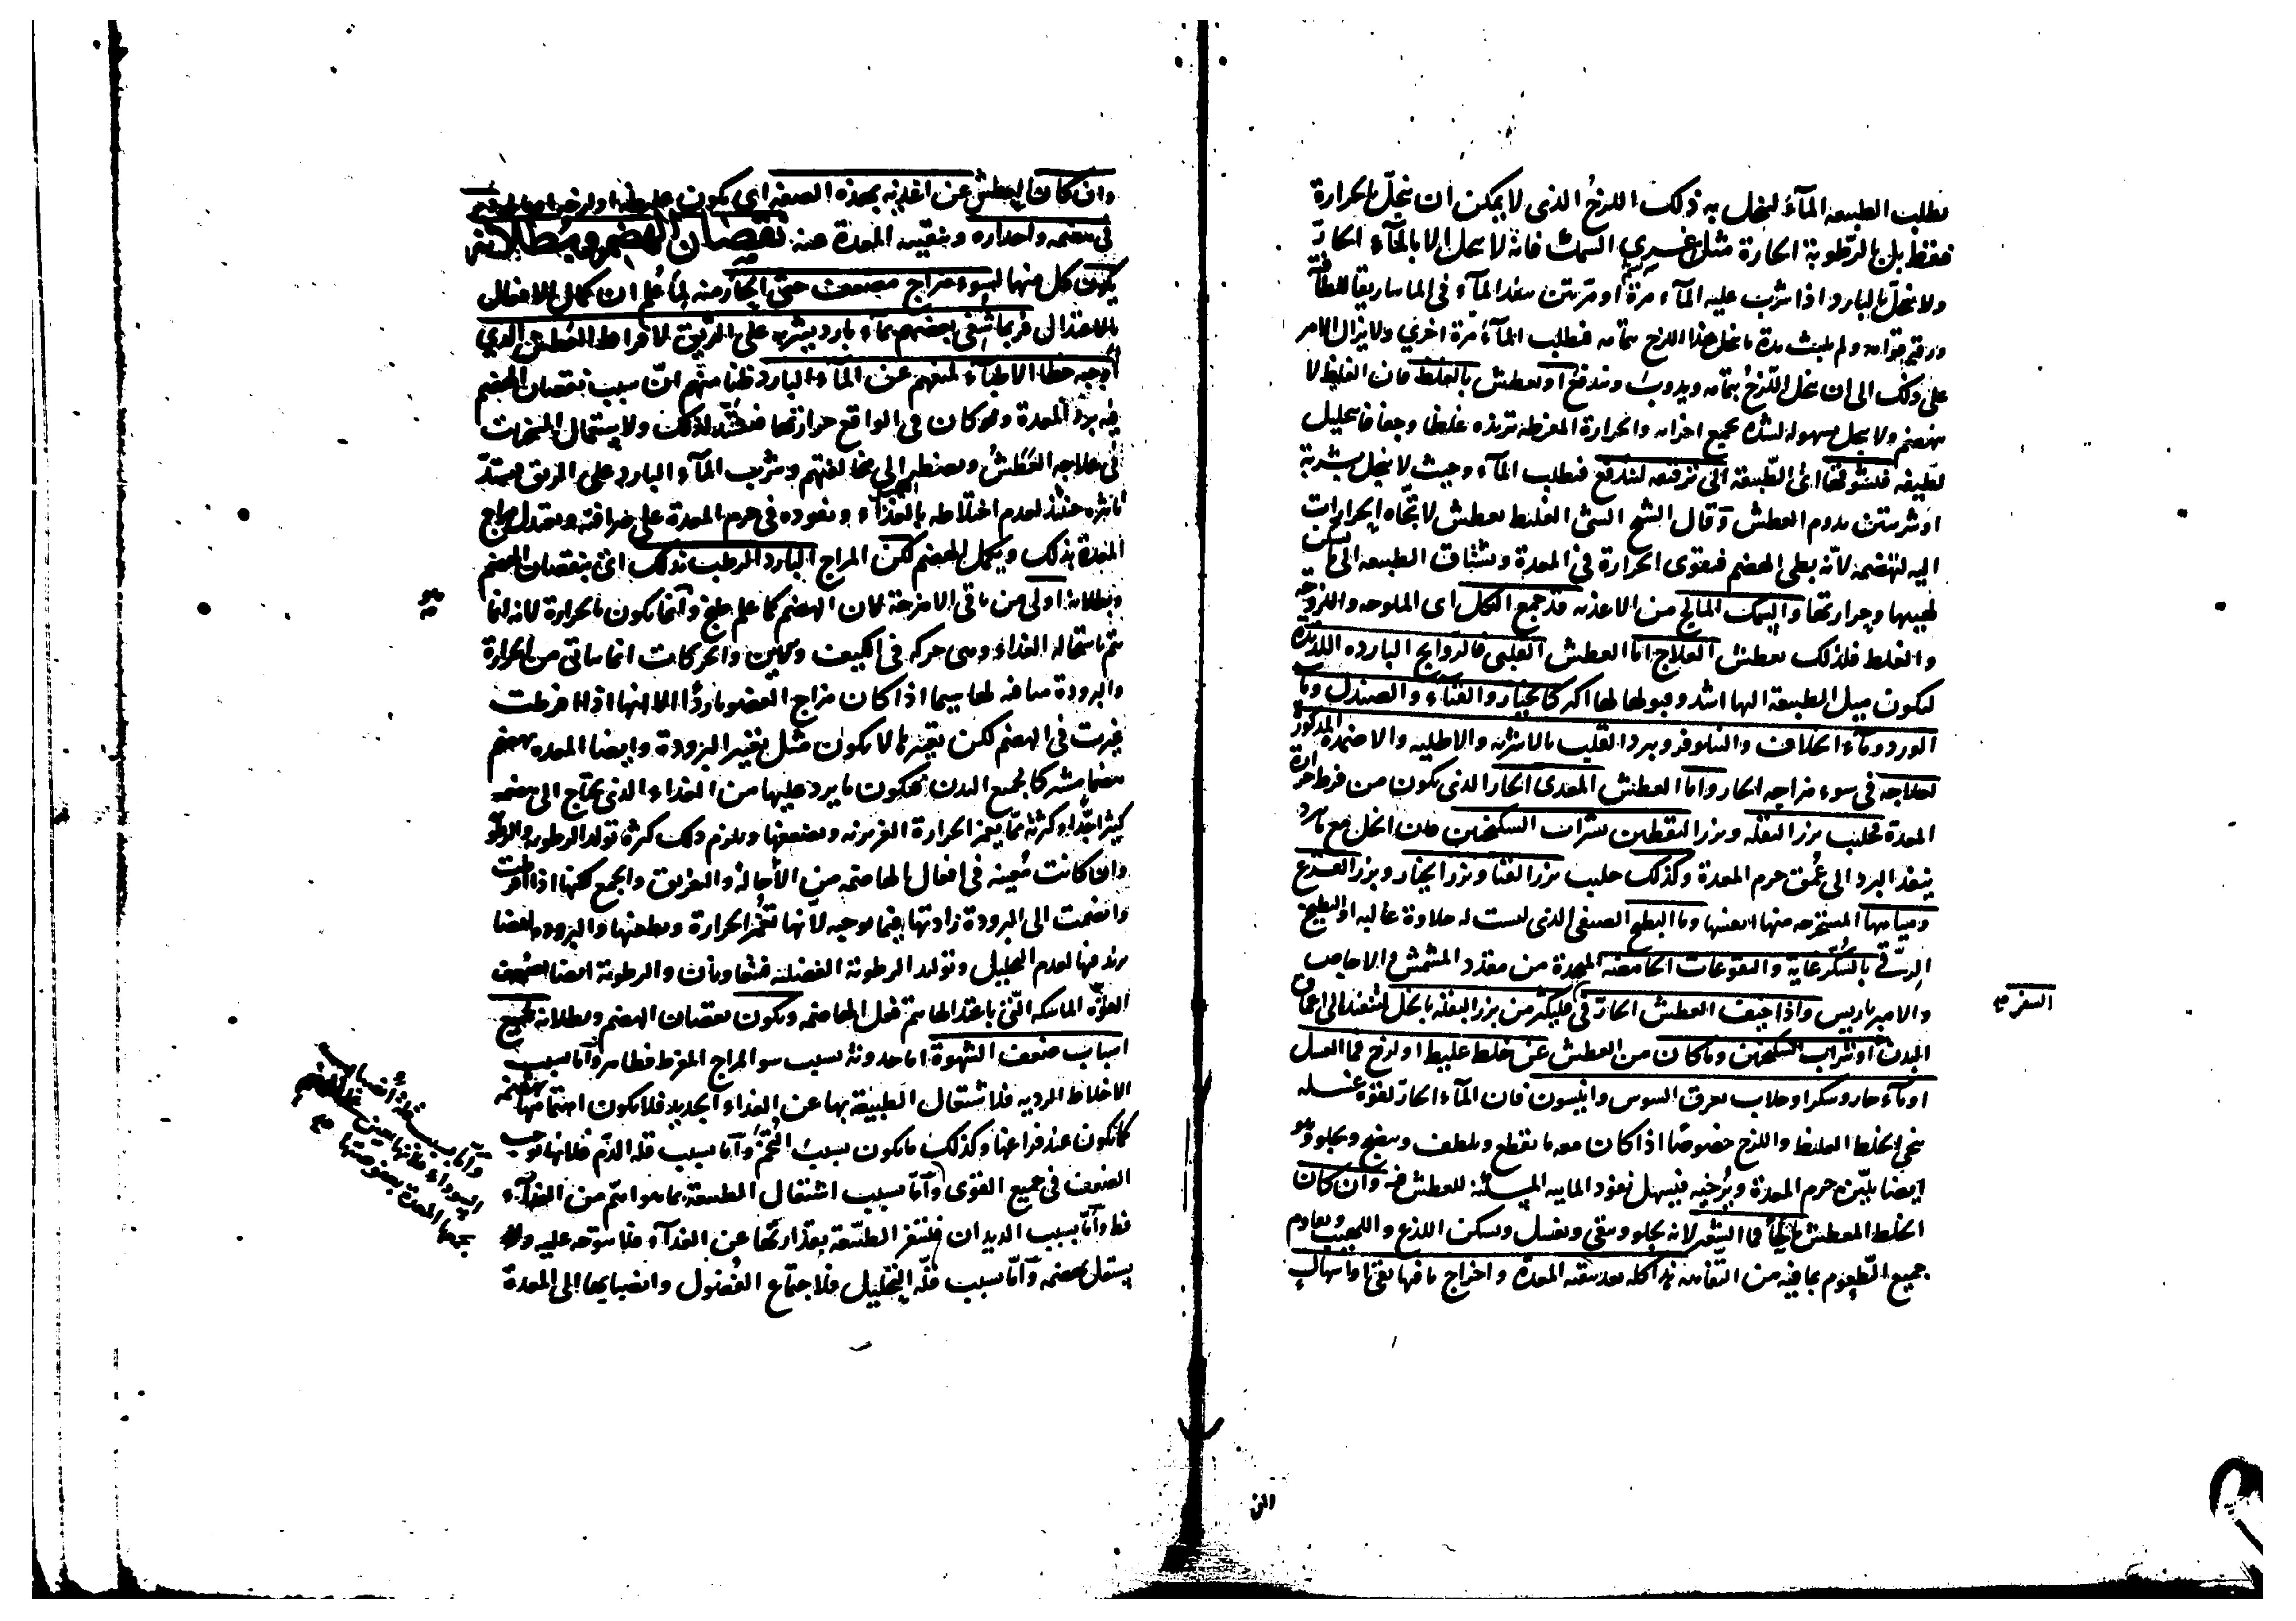 تطلب الطبيعه المآء لينحل به ذلك اللزج الذى لا يمكن ان ينحلّ بالحرارة
فقط بل بالرّطوبة الحارة مثل غرى السمك فانه لا ينحل الا بالمآء الحارّ
ولا ينحلّ بالبارد واذا شرب عليه المآء مرة او مرتين ينفذ المآء فى الماساريقا للطافته
ورقة قوامه ولم يلبث مدة ما ينحل هذا اللزج بتمامه فتطلب المآء مرّة اخرى ولا يزال الامر
على ذلك الى ان ينحل اللّزج بتمامه ويذوب ويندفع او يعطش بالغلظ فان الغليظ لا
ينهضم ولا ينحل بسهوله لشدة تجمع اجزائه والحرارة المفرطة تزيده غلظا وجفافا بتحليل
لطيفه فيتشوقها اى الطّبيعة الى ترقيقه ليندفع فتطلب المآء وحيث لا ينحل بشربة
او شربتين يدوم العطش وقال الشيخ الشئ الغليظ يعطش لاتّجاه الحرارات
اليه لتهضمه لانّه بطى الهضم فيقوى الحرارة فى المعدة وتشتاق الطبيعه الى تسكين
لهيبها وحرارتها والسمك المالح من الاغذيه قد جمع الكل اى الملوحه واللزوجة
والغلظ فلذلك يعطش العلاج اما العطش القلبى فالروايح البارده اللذيذة
ليكون ميل الطبيعة اليها اشد وقبولها لها اكثر كالخيار والقثاء والصندل وماء
الورد ومآء الخلاف والنيلوفر ويبرد القلب بالاشربه والاطليه والاضمدة المذكورة
لعلاجه فى سوء مزاجه الحار واما العطش المعدى الحار الذى يكون من فرط حرارة
المعدة فحليب بزر البقله وبزر اليقطين بشراب السكنجبين فان الخل مع ما يبرد
ينفذ البرد الى عُمق جرم المعدة وكذلك حليب بزر القثا وبزر الخيار وبزر القرع
ومياهها المستخرجه منها انفسها وماء البطيخ الصيفى الذى ليست له حلاوة غالبه او البطيخ
الرقّى بالسّكر غاية والنقوعات الحامضه المتخذة من مفرد المشمش والاجاص
والامبرباريس واذا خيف العطش الحار فى السفر فليكثر من بزر البقلة بالخل لتنفذ الى اعماق
البدن او شراب السكنجبين وما كان من العطش عن خلط غليظ او لزج فماء العسل
او مآء حار وسكر او جلاب بعرق السوس وانيسون فان المآء الحار لقوة غسله
ينحى الخلط الغليظ واللزج خصوصًا اذا كان معه ما يقطع ويلطف وينضج ويجلو وهو
ايضا يلين جرم المعدة ويُرخيه فيسهل نفوذ المايه المسكنه للعطش فيه وان كان
الخلط المعطش مالحًا فماء الشعير لانه يجلو وينقى ويغسل ويسكن اللذع واللهيب ويقاوم
جميع الطّعوم بما فيه من التفاهه اكله بعد تنقيه المعدة واخراج ما فيها بقئ او اسهال
وان
وان كان العطش عن اغذية بهذه الصفه اى يكون غليظه او لزجه او مالحه
فى هضمه واحداره وتنقيه المعدة عنه نقصان الهضم وبطلانه
يكون كل منهما لسوء مزاج مضعف حتى الحار منه لما عُلم ان كمال الافعال
بالاعتدال فربما شفى بعضهم بمآء بارد يشربه على الريق لافراط العطش الذي
اوجبه خطا الاطبآء لمنعهم عن المآء البارد ظنا منهم انّ سبب نقصان الهضم
فيه برد المعدة وهو كان فى الواقع حرارتها فيشتد لذلك ولاستعمال المسخنات
فى علاجه العَطَشُ ويضطر الى مخالفتهم وشرب المآء البارد على الريق يشتدّ
تاثيره حينئذ لعدم اختلاطه بالغذآء ونفوذه فى جرم المعدة على صرافته ويعتدل مزاج
المعدة بذلك ويكمل الهضم لكن المزاج البارد المرطب بذلك اى بنقصان الهضم
وبطلانه اولى من باقى الامزجة لان الهضم كما علم طبخ وانما يكون بالحرارة لانه انما
يتم باستحاله الغذاء وهى حركه فى الكيف والحركات انما تتاتى من الحرارة
والبرودة منافيه لها سيما اذا كان مزاج العضو باردًا الا انها اذا افرطت
غيرت فى الهضم لكن تغييرها لا يكون مثل تغيير البرودة وايضا المعده تهضم
هضما مشتركا لجميع البدن فيكون ما يرد عليها من الغذاء الذى يحتاج الى هضمه
كثيرا جدًّا وكثرته ممّا يغمر الحرارة الغريزيه ويضعفها ويلزم ذلك كثرة تولد الرطوبه والرطوبة
وان كانت مُعينه فى افعال الهاضمه من الاحالة والتفريق والجمع لكنها اذا افرطت
وانضمت الى البرودة زادتها فيما توجبه لانّها تغمر الحرارة وتطفئها والبرودة ايضا
تزيد فيها لعدم التحليل وتولد الرطوبة الفضليه فيتعاونان والرطوبة ايضا تضعف
القوّة الماسكه الّتى باعتدالها يتم فعل الهاضمه ويكون نقصان الهضم وبطلانه لجميع
اسباب ضعف الشهوة اما حدوثه بسبب سو المزاج المفرط فظاهر وامّا بسبب
الاخلاط الرديه فلاشتغال الطبيعة بها عن الغذاء الجديد فلا يكون اهتمامها بهضمه
كما يكون عند فراغها وكذلك ما يكون بسبب التُّخَم وامّا بسبب قله الدّم فلانها توجب
الضعف فى جميع القوى وامّا بسبب اشتغال الطبيعة بما هو اهم من الغذآء
فظ وامّا بسبب الديدان فلتنفر الطّبيعة بقذارتها عن الغذآء فلا تتوجه عليه ولا
يستقل بهضمه وامّا بسبب قلّه التحليل فلاجتماع الفُضول وانصبابها الى المعدة
وامّا بسبب قلة انصباب
السوداء